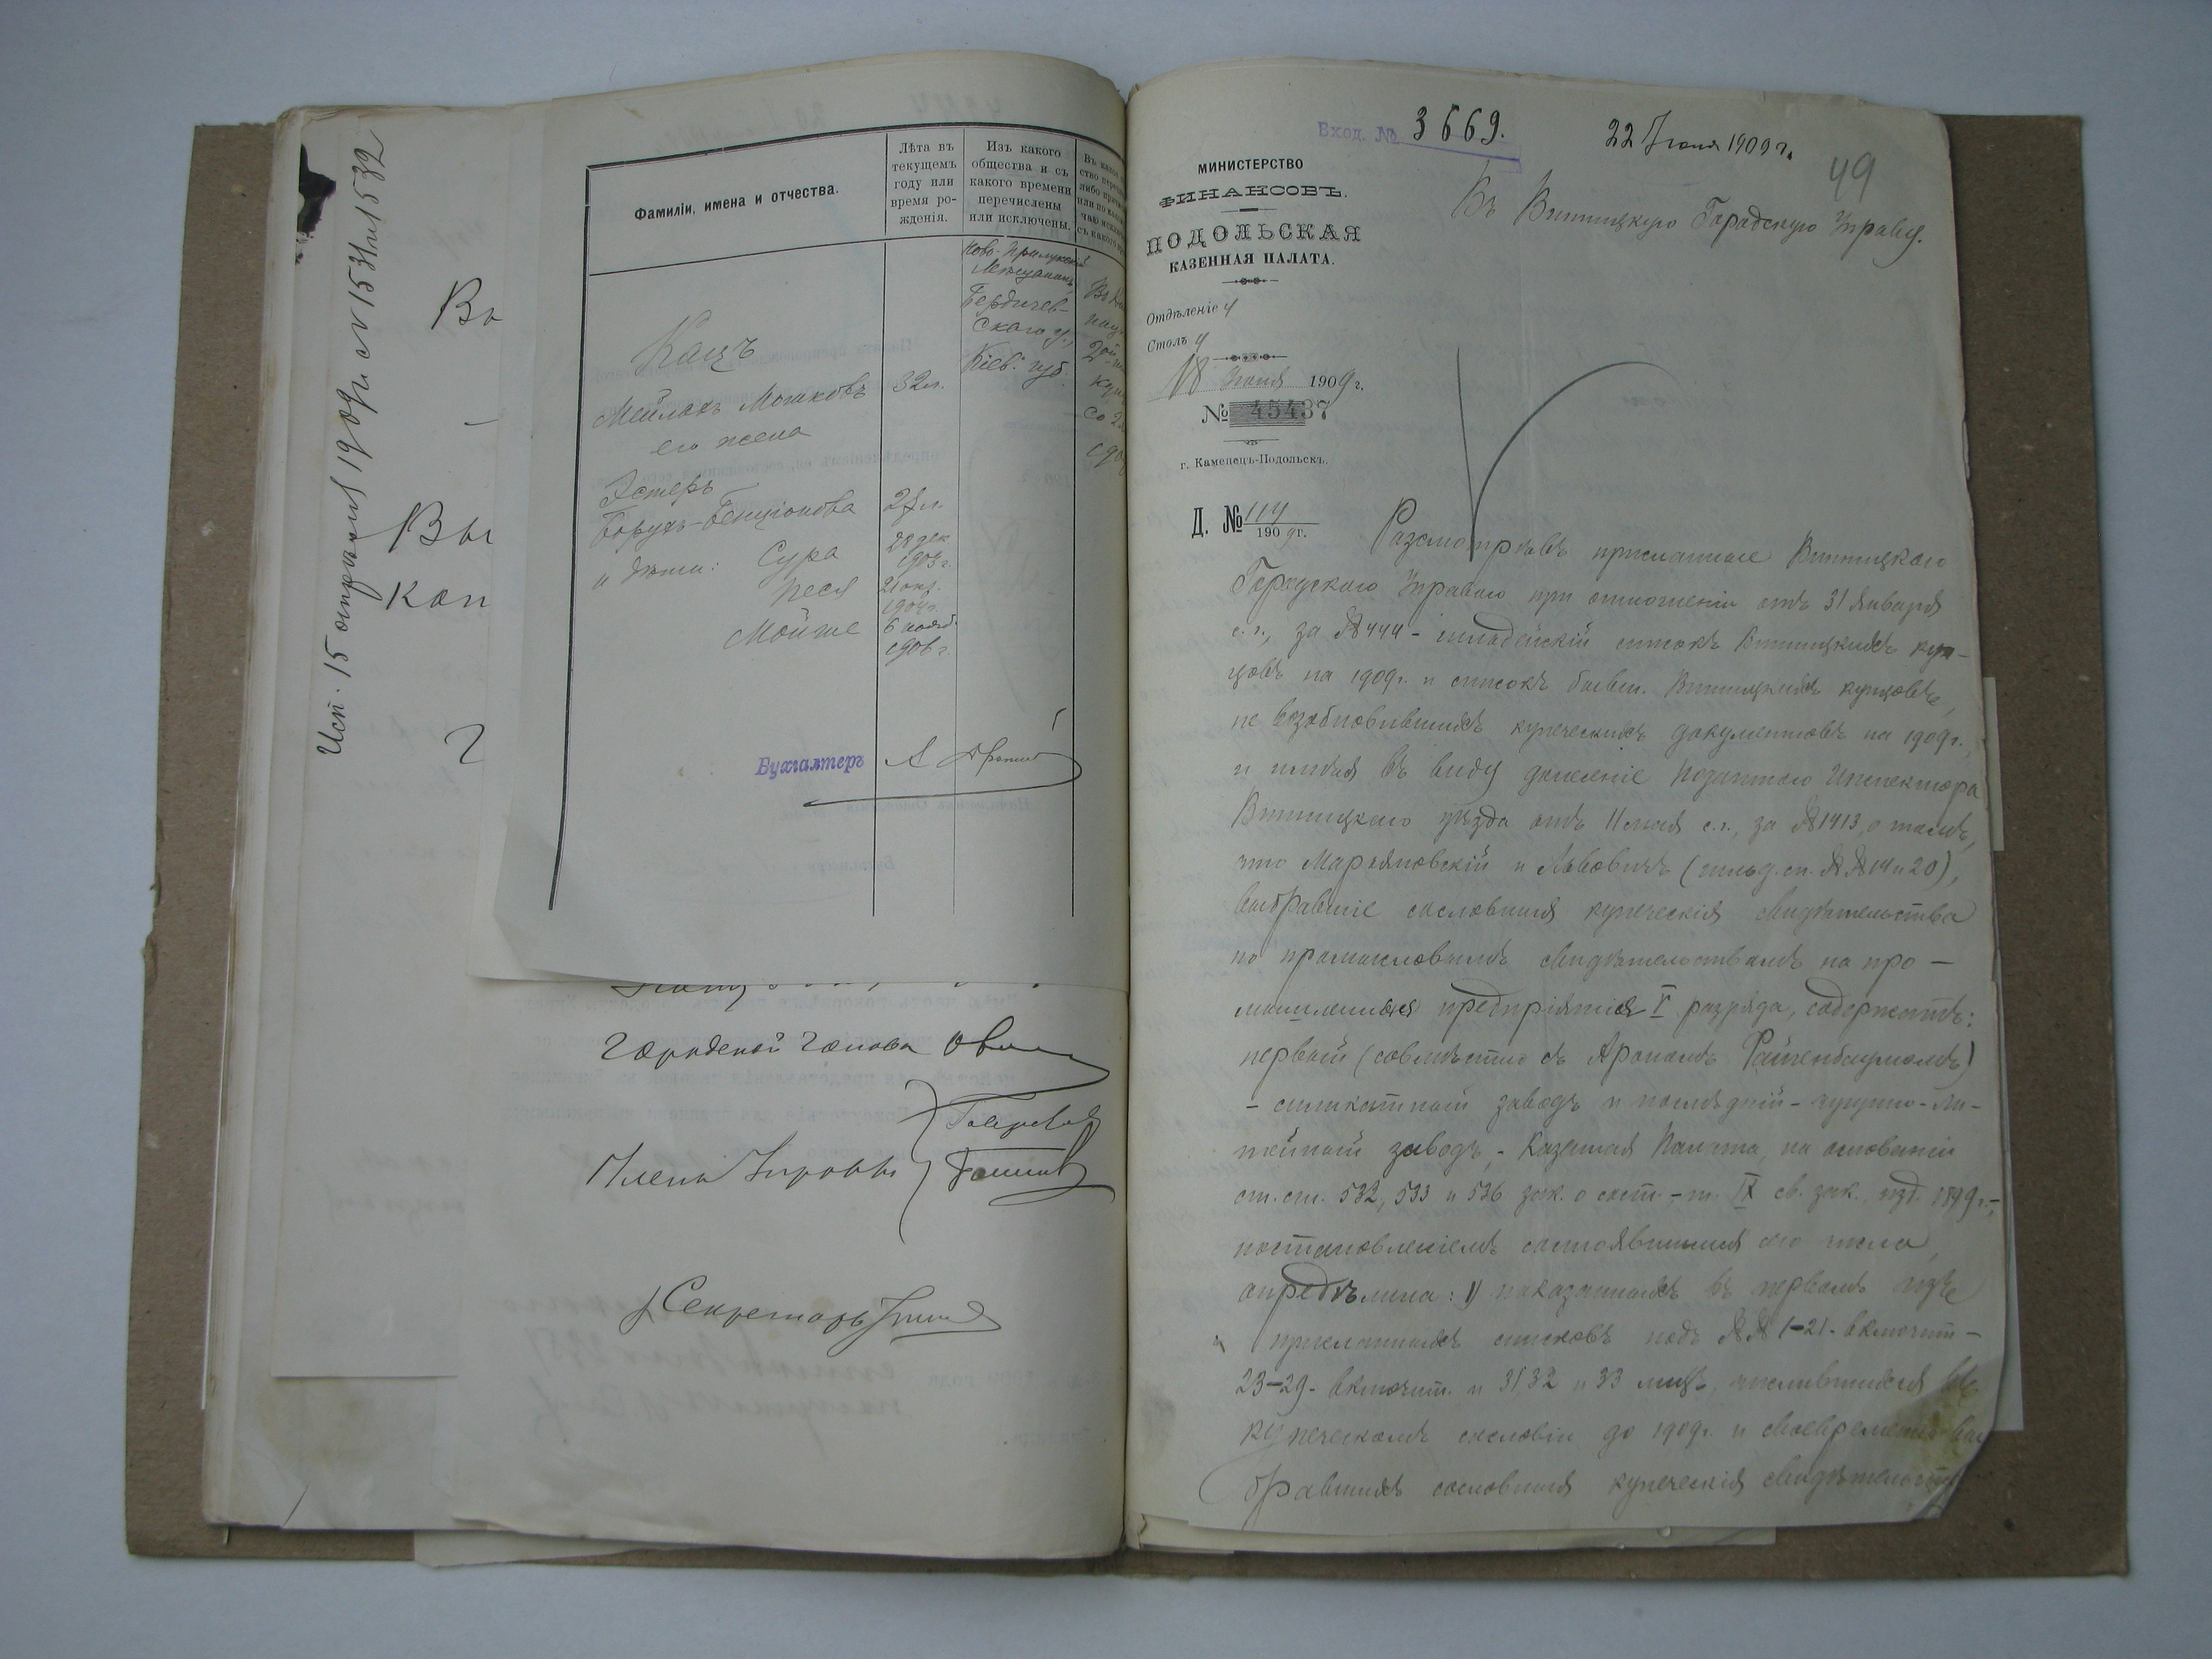 Исп. 15 апрѣля 1909 г. № 1531 и 1532
Вы
Кап
Фамиліи, имена и отчества.
Лѣта въ
текущемъ
году или
время ро-
жденія.
Изъ какого
общества и съ
какого времени
перечислены
или исключены.
Ново-Прилукскій
Мѣщанинъ
Бердичев-
скаго у.,
Кіев. губ.
Кацъ
Мейлахъ Мошковъ 32 л.
его жена
Эстеръ
Борухъ-Бенціонова
и дѣти: Сура 28 дек. 1903 г.
Песя 21 окт. 1904 г.
Мойше 6 нояб. 1906 г.
Бухгалтеръ
Городской Голова
Члены Управы
Секретарь
Вход. № 3669.
22 Іюня 1909 г.
49
МИНИСТЕРСТВО
ФИНАНСОВЪ.
ПОДОЛЬСКАЯ
КАЗЕННАЯ ПАЛАТА.
Отдѣленіе
Столъ
18 Іюня 1909 г.
№ 45437
г. Каменецъ-Подольскъ.
Д. № 114
1909 г.
Въ Винницкую Городскую Управу.
Разсмотрѣвъ присланные Винницкою
Городскою Управою при отношеніи отъ 31 Января
с. г., за № 444 - гильдейскій списокъ Винницкихъ куп-
цовъ на 1909 г. и списокъ бывш. Винницкихъ купцовъ,
не возобновившихъ купеческихъ документовъ на 1909 г.
и имѣя въ виду донесеніе Податного Инспектора
Винницкаго уѣзда отъ 11 мая с. г., за № 1413, о томъ,
что Марьяновскій и Львовичъ (гильд. сп. №№ 14 и 20),
выбравшіе сословныя купеческія свидѣтельства
по промысловымъ свидѣтельствамъ на про-
мышленныя предпріятія V разряда, содержатъ:
первый (совмѣстно съ Арономъ Файнбаумомъ)
- силикатный заводъ и послѣдній - чугунно-ли-
тейный заводъ, - Казенная Палата, на основаніи
ст. ст. 532, 533 и 536 зак. о сост. - т. IX св. зак. изд. 1899 г.,
постановленіемъ состоявшимся сего числа,
опредѣлила: 1) показанныхъ въ первомъ изъ
присланныхъ списковъ подъ №№ 1-21 - включит. -
23-29 - включит. и 31, 32 и 33 лицъ, числившихся въ
купеческомъ сословіи до 1909 г. и своевременно вы
бравшихъ сословныя купеческія свидѣтельства